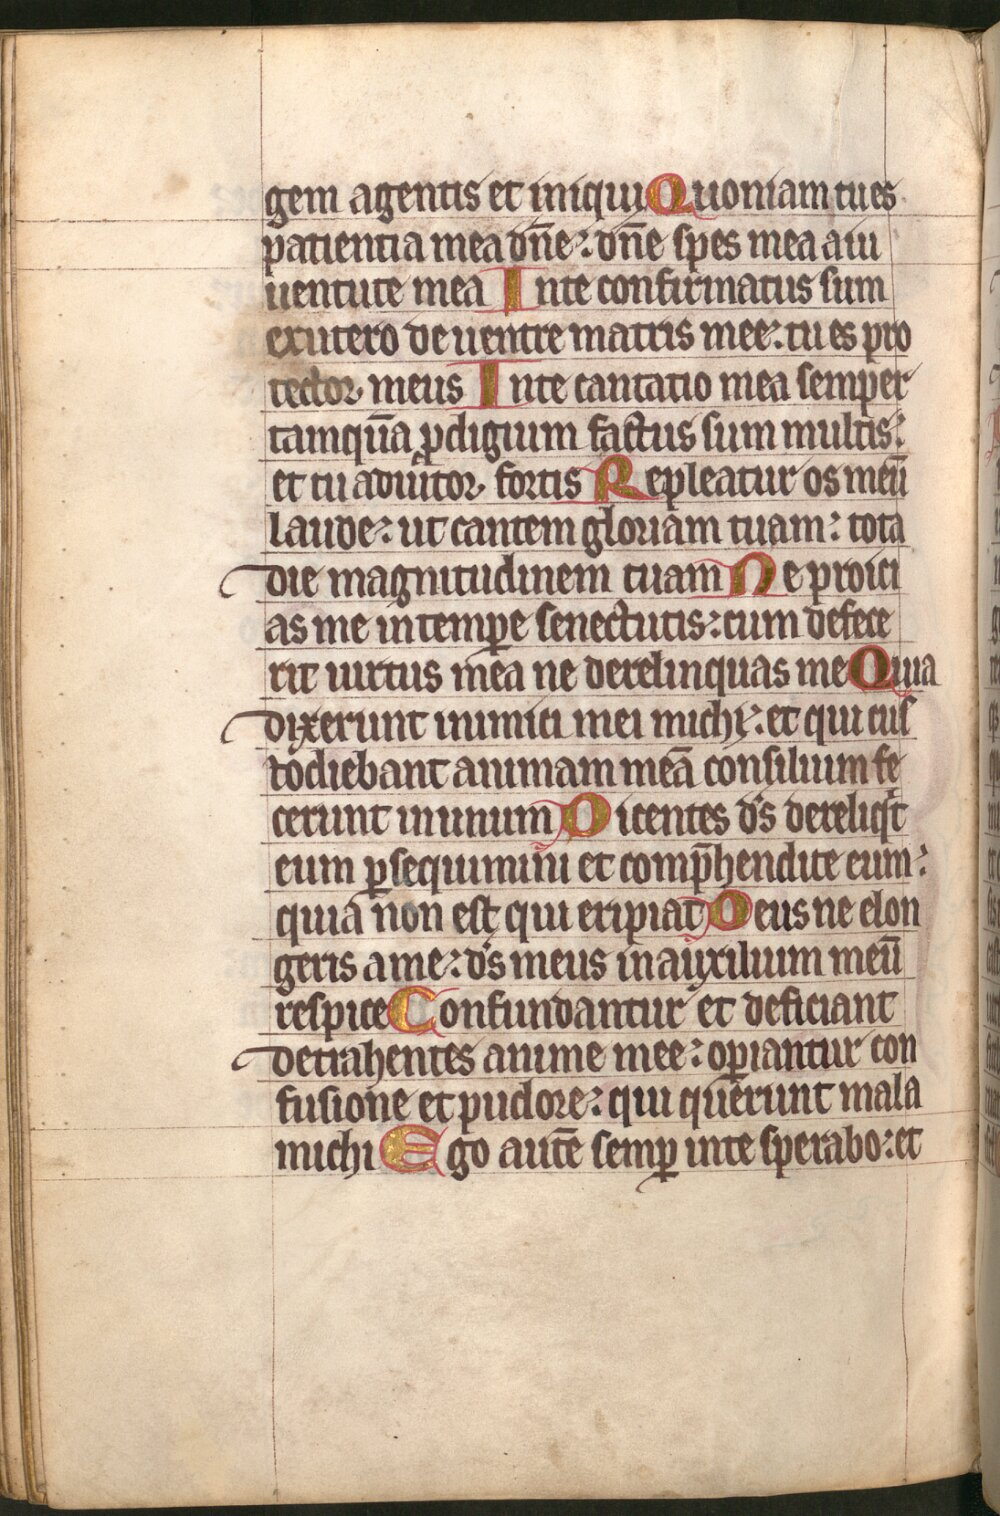 gem agentis et iniqui Quoniam tu es
patientia mea dn̄e: dn̄e spes mea a iu
uentute mea In te confirmatus sum
ex utero de uentre matris mee: tu es pro
tector meus In te cantatio mea semper
tamqua̅ ꝓdigium factus sum multis:
et tu adiutor fortis Repleatur os meu̅
laude: ut cantem gloriam tuam: tota
die magnitudinem tuam Ne proici
as me in tempꝑe senectutis: cum defece
rit uirtus mea ne derelinquas me Quia
dixerunt inimici mei michi: et qui cus
todiebant animam mea̅ consilium fe
cerunt in unum Dicentes ds̄ dereliqͥt
eum ꝑsequimini et comp̅hendite eum:
quia non est qui eripiat Deus ne elon
geris a me: ds̄ meus in auxilium meu̅
respice Confundantur et deficiant
detrahentes anime mee: opꝑiantur con
fusione et pudore: qui querunt mala
michi Ego aute̅ semꝑ in te sperabo: et